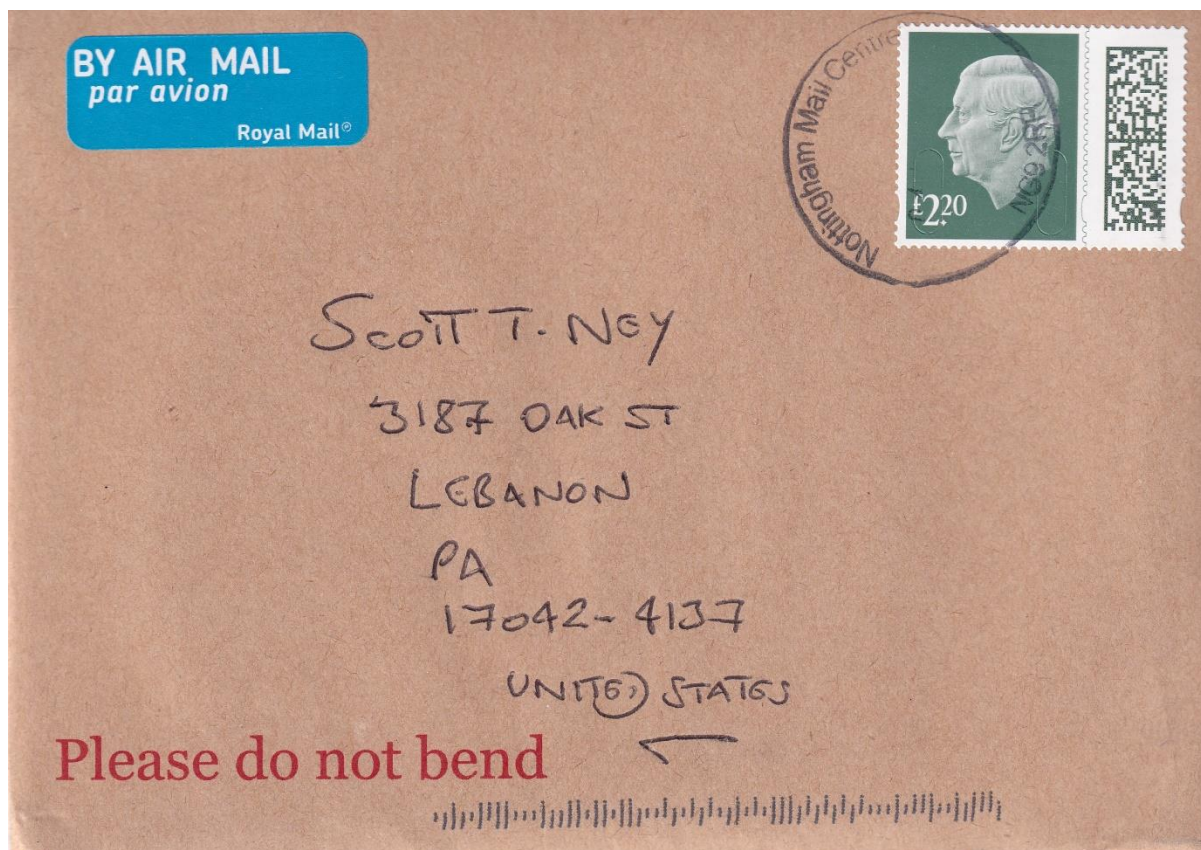 BY AIR MAIL
par avion
Royal Mail®
Nottingham Mail Centre
£2.20
SCOTT T. NEY
3187 OAK ST
LEBANON
PA
17042-4137
UNITED STATES
Please do not bend